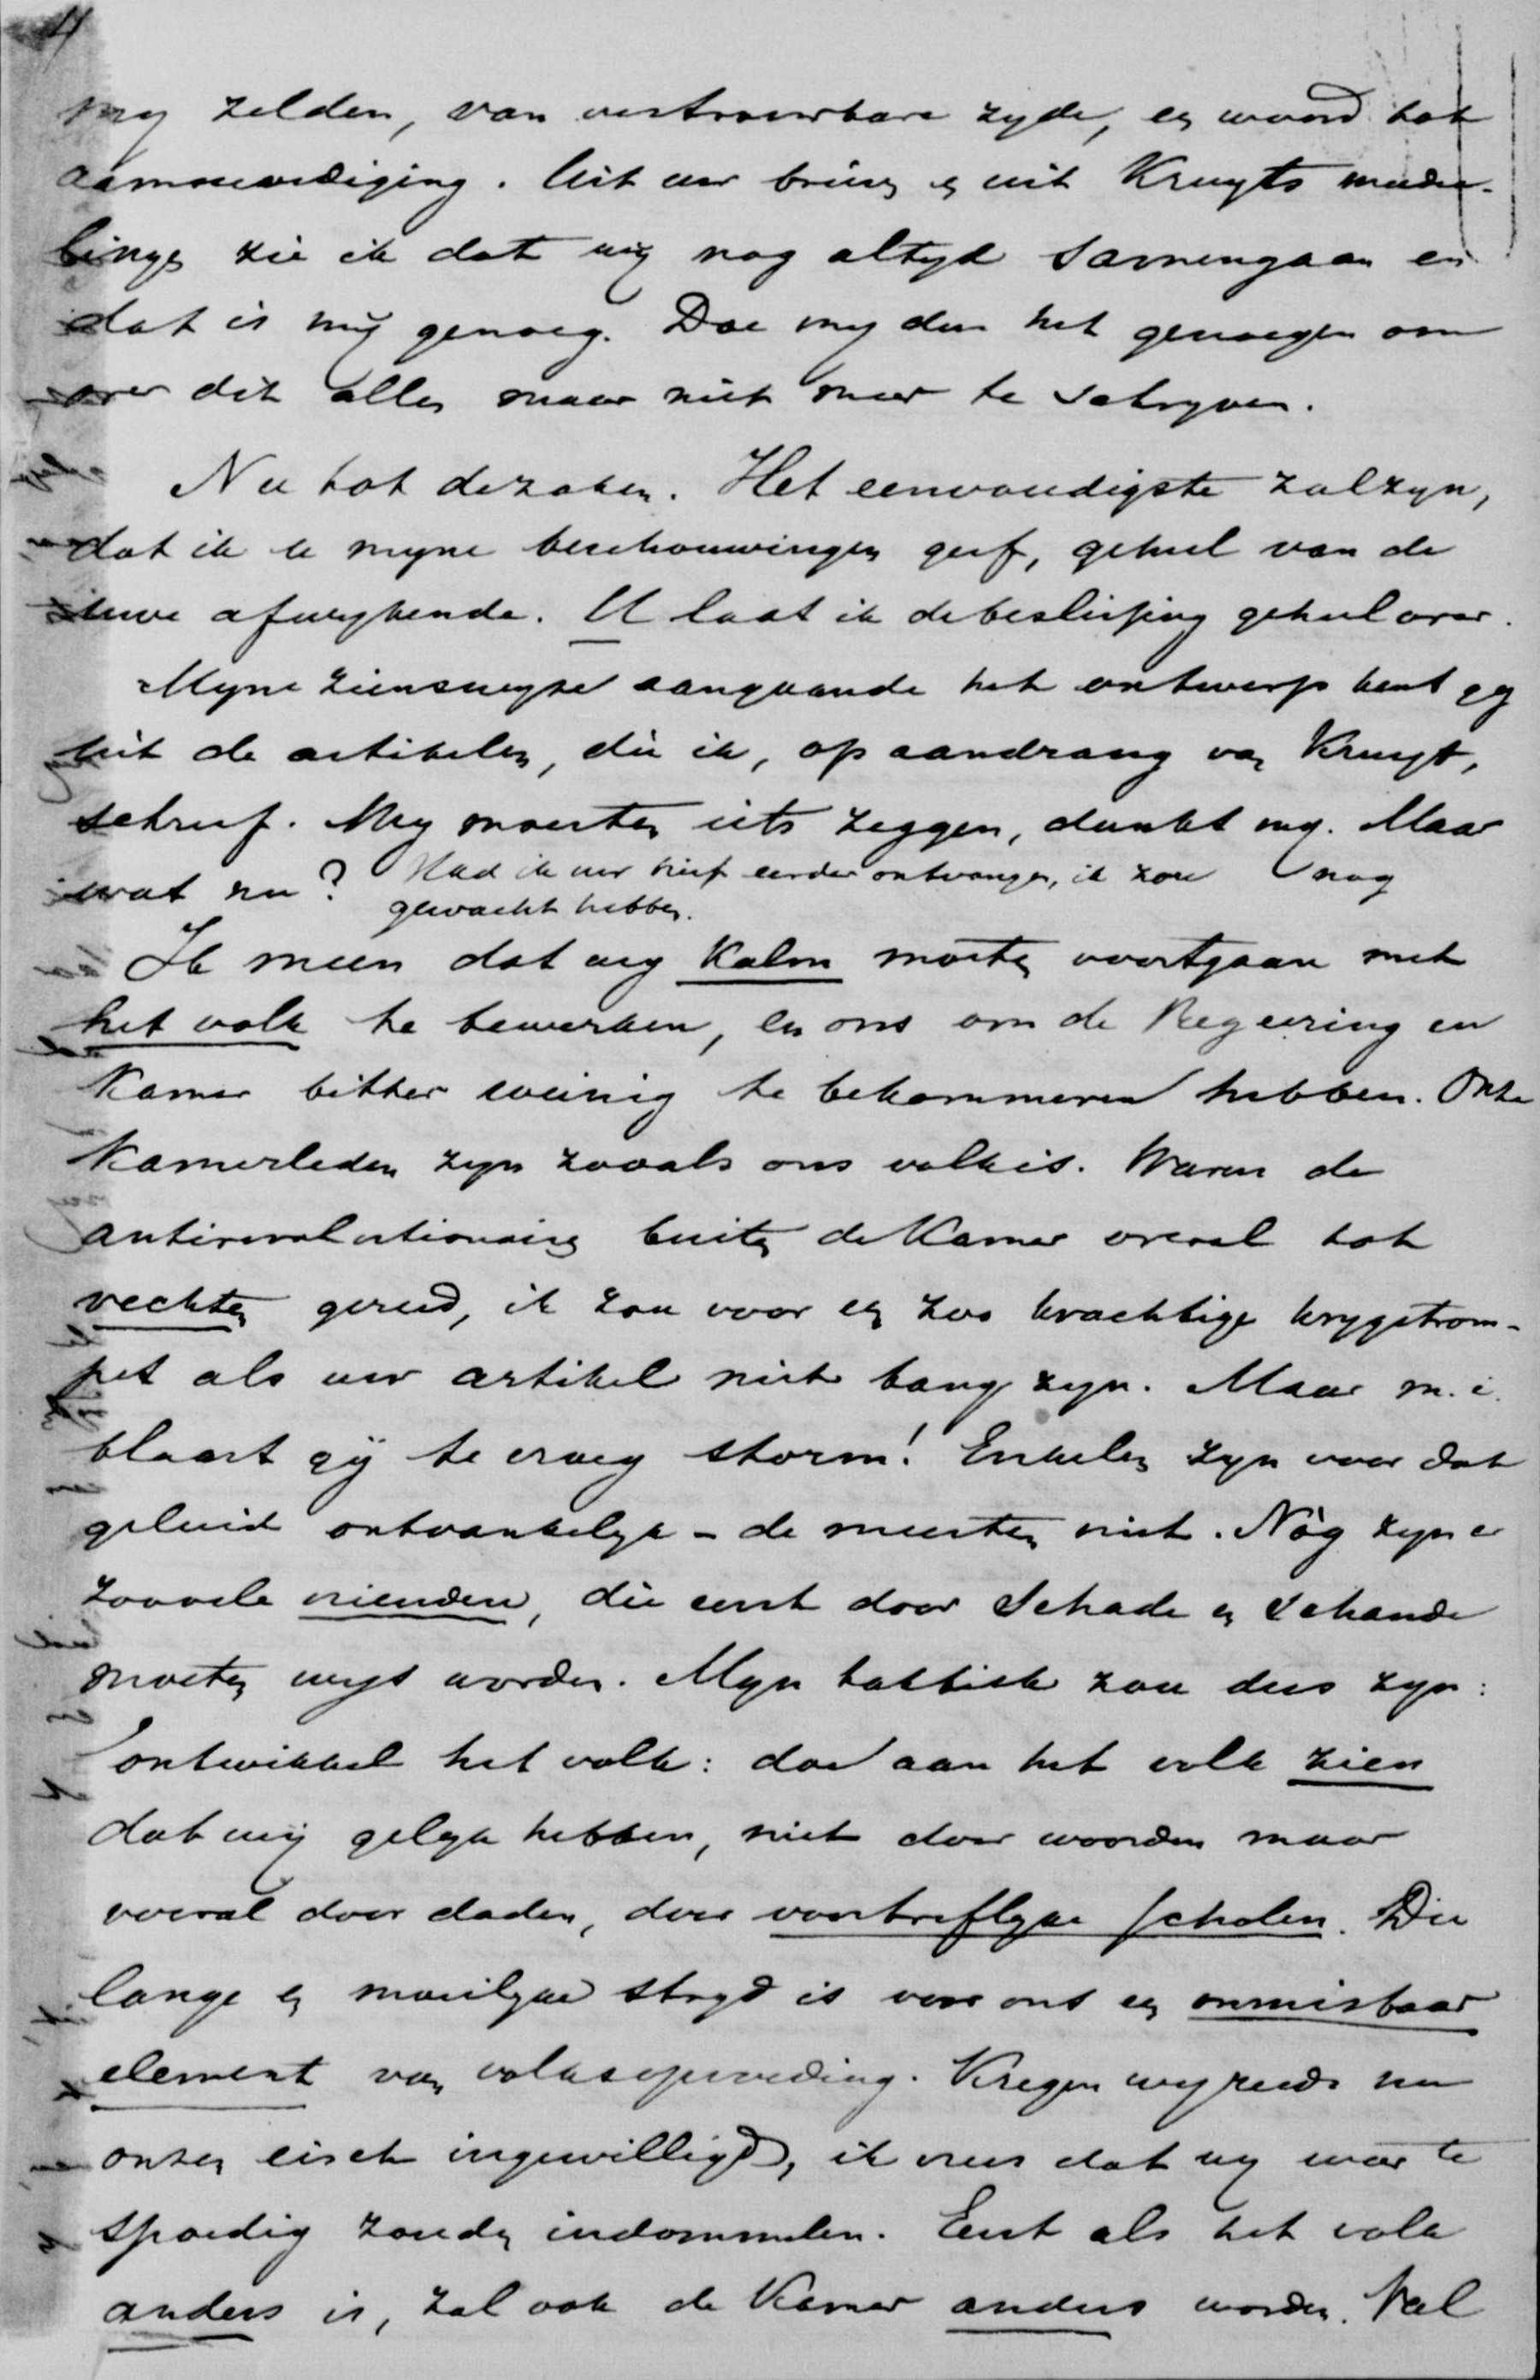 my zelden, van vertrouwbare zyde, een woord tot
aanmoediging. Uit uw brieven en uit Kruyts mede-
lingen zie ik dat wij nog altyd samengaan en
dat is mij genoeg. Doe my dan het genoegen om
over dit alles maar niet meer te schryven.
Nu tot de zaken. Het eenvoudigste zal zyn,
dat ik u myne beschouwingen geef, geheel van de
uwe afwykende. U laat ik de beslissing geheel over.
Myne zienswyze aangaande het ontwerp kent gy
uit de artikelen, die ik, op aandrang van Kruyt,
schreef. Wy moesten iets zeggen, dunkt my. Maar
wat nu? Had ik uw brief eerder ontvangen, ik zou nog
gewacht hebben.
Ik meen dat wy kalm moeten voortgaan met
het volk te bewerken, en ons om de Regeering en
Kamer bitter weinig te bekommeren hebben. Onze
Kamerleden zyn zooals ons volk is. Waren de
antirevolutionairen buiten de Kamer overal tot
vechten gereed, ik zou voor een zoo krachtige krygstrom-
pet als uw artikel niet bang zyn. Maar m.i.
blaast gij te vroeg storm! Enkelen zyn voor dat
geluid ontvankelyk - de meesten niet. Nòg zyn er
zoovele vrienden, die eerst door schade en schande
moeten wys worden. Myn taktiek zou dus zyn:
ontwikkel het volk: doe aan het volk zien
dat wij gelyk hebben, niet door woorden maar
vooral door daden, door voortreflyke scholen. Die
lange en moeilyke stryd is voor ons een onmisbaar
element van volksopvoeding. Kregen wy reeds nu
onzen eisch ingewilligd, ik vrees dat wy weer te
spoedig zouden indommelen. Eerst als het volk
anders is, zal ook de Kamer anders worden. Val